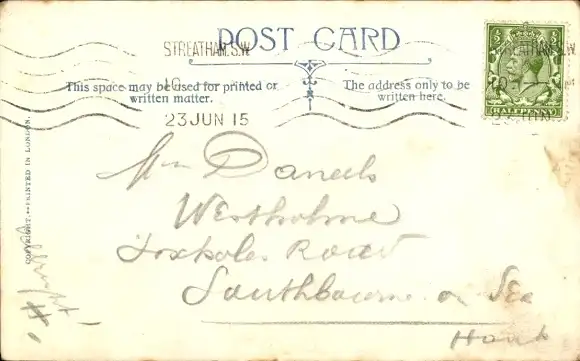 POST CARD
STREATHAM.S.W.
This space may be used for printed or
written matter.
The address only to be
written here.
23 JUN 15
STREATHAM.S.W.
HALFPENNY
COPYRIGHT.—PRINTED IN LONDON.
Mrs Daniels
Westholme
Foxholes Road
Southbourne on Sea
Hants